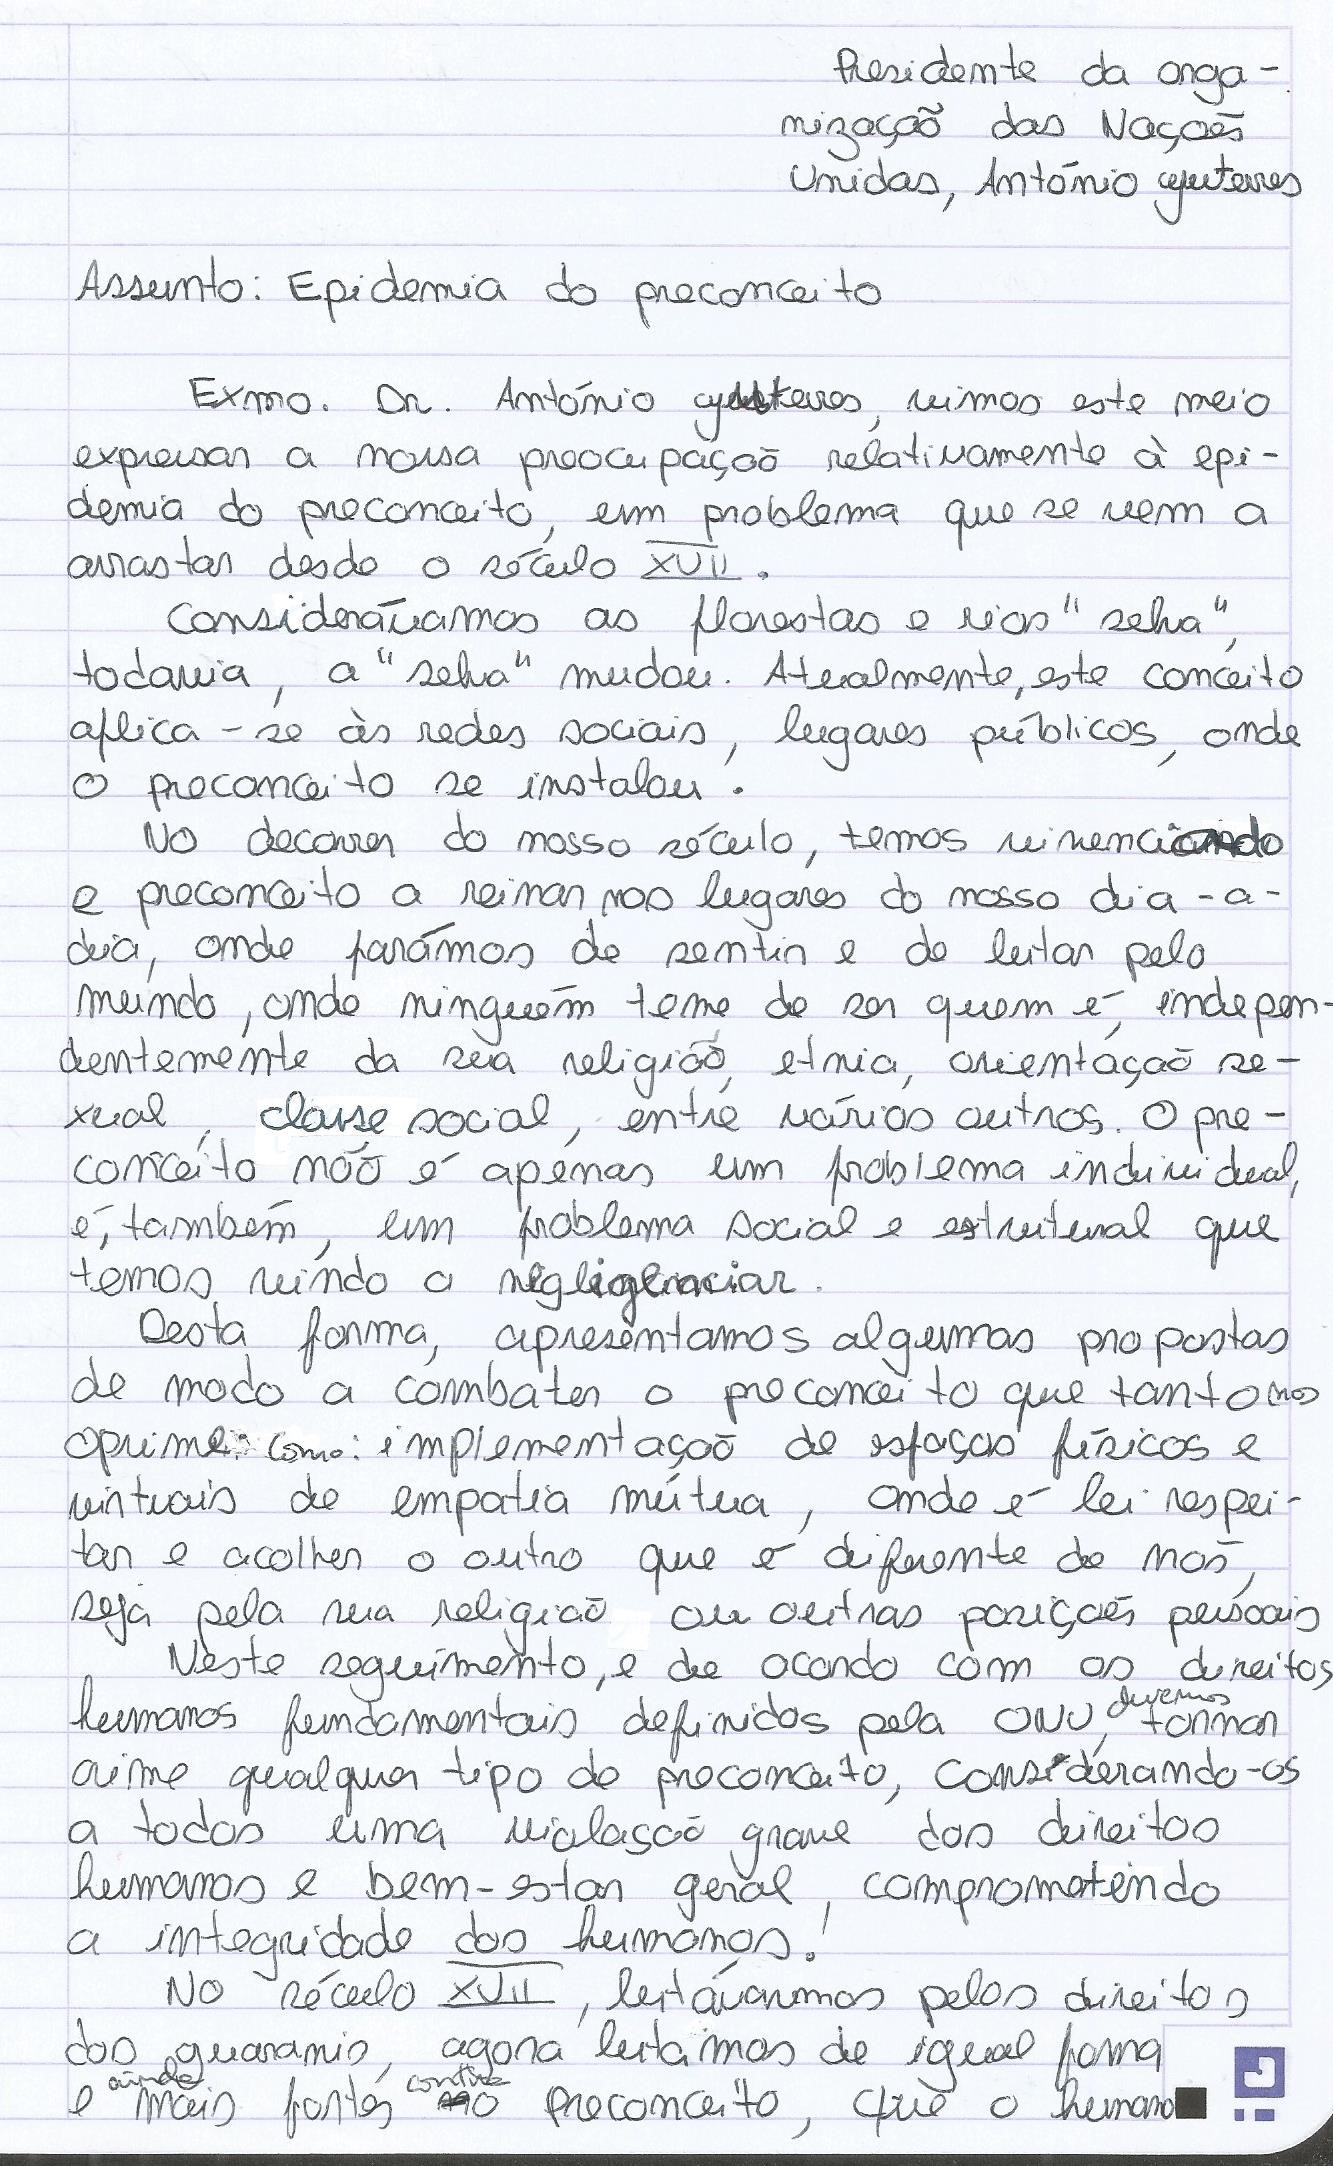 Presidente da orga-
nização das Nações
Unidas, António Guterres
Assunto: Epidemia do preconceito
Exmo. Dr. António Guterres, vimos este meio
expressar a nossa preocupação relativamente à epi-
demia do preconceito, um problema que se vem a
arrastar desde o século XVII.
Considerávamos as florestas e rios "selva",
todavia, a "selva" mudou. Atualmente, este conceito
aplica-se às redes sociais, lugares públicos, onde
o preconceito se instalou.
No decorrer do nosso século, temos vivenciando
e preconceito a reinar nos lugares do nosso dia-a-
dia, onde parámos de sentir e de lutar pelo
mundo, onde ninguém teme de ser quem é, indepen-
dentemente da sua religião, etnia, orientação se-
xual, classe social, entre vários outros. O pre-
conceito não é apenas um problema individual,
é, também, um problema social e estrutural que
temos vindo a negligenciar.
Desta forma, apresentamos algumas propostas
de modo a combater o preconceito que tanto nos
oprime. Como: implementação de espaços físicos e
virtuais de empatia mútua, onde é lei respei-
tar e acolher o outro que é diferente de nós,
seja pela sua religião ou outras posições pessoais
Neste seguimento, e de acordo com os direitos
humanos fundamentais definidos pela ONU, devemos tornar
crime qualquer tipo de preconceito, considerando-os
a todos uma violação grave dos direitos
humanos e bem-estar geral, comprometendo
a integridade dos humanos!
No século XVII, lutávamos pelos direitos
dos guaranis, agora lutamos de igual forma
e ainda mais fortes contra o preconceito, que o humano